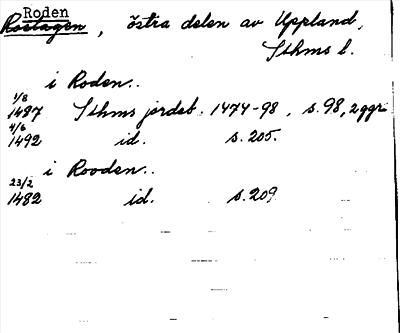 Roden
Roslagen, östra delen av Uppland,
Sthms l.
i Roden..
1/8
1487 Sthms jordeb. 1474-98, s. 98, 2 ggr
4/6
1492 id. s. 205.
i Rooden..
23/2
1482 id. s. 209